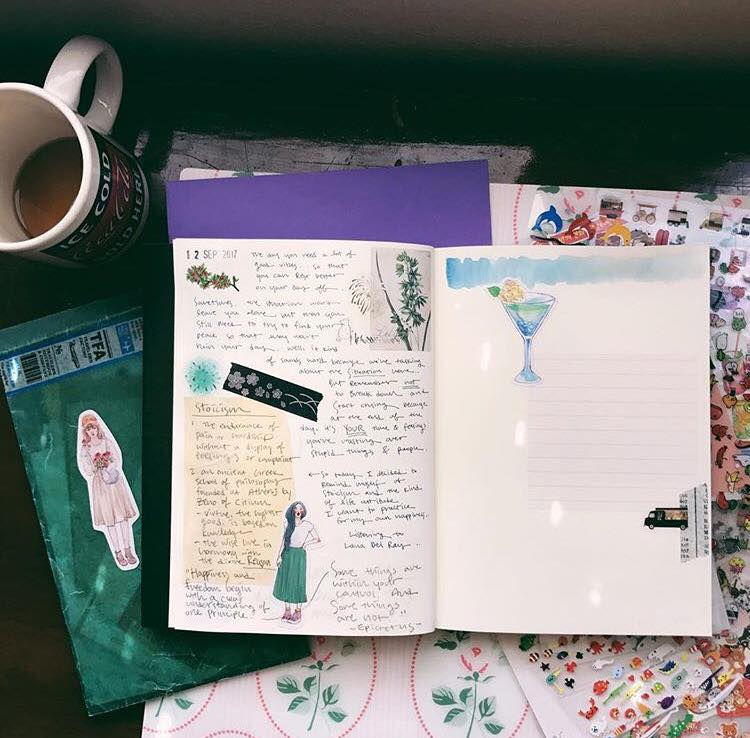 ICE COLD
Coca-Cola
SOLD HERE
12 SEP 2017
The day you need a lot of
good vibes so that
you can rest better
on your day off
Sometimes the situation won't
leave you alone but then you
still need to try to find your
peace so that they won't
ruin your day. well it kind
of sounds harsh because we're talking
about the situation here.
But remember not
to break down and
start crying because
at the end of the
day, it's YOUR time & feelings
you're wasting over
stupid things & people.
Stoicism
1. the endurance of
pain or hardship
without a display of
feelings or complaint
2. an ancient Greek
school of philosophy
founded at Athens by
Zeno of Citium
- virtue, the highest
good is based on
knowledge
- the wise live in
harmony with
the divine Reason
← So today I decided to
remind myself of
Stoicism and the kind
of life attitude
I want to practice
for my own happiness..
Listening to
Lana Del Ray..
"Happiness and
freedom begin
with a clear
understanding of
one principle:
Some things are
within your
control. And
some things
are not"
- Epictetus -